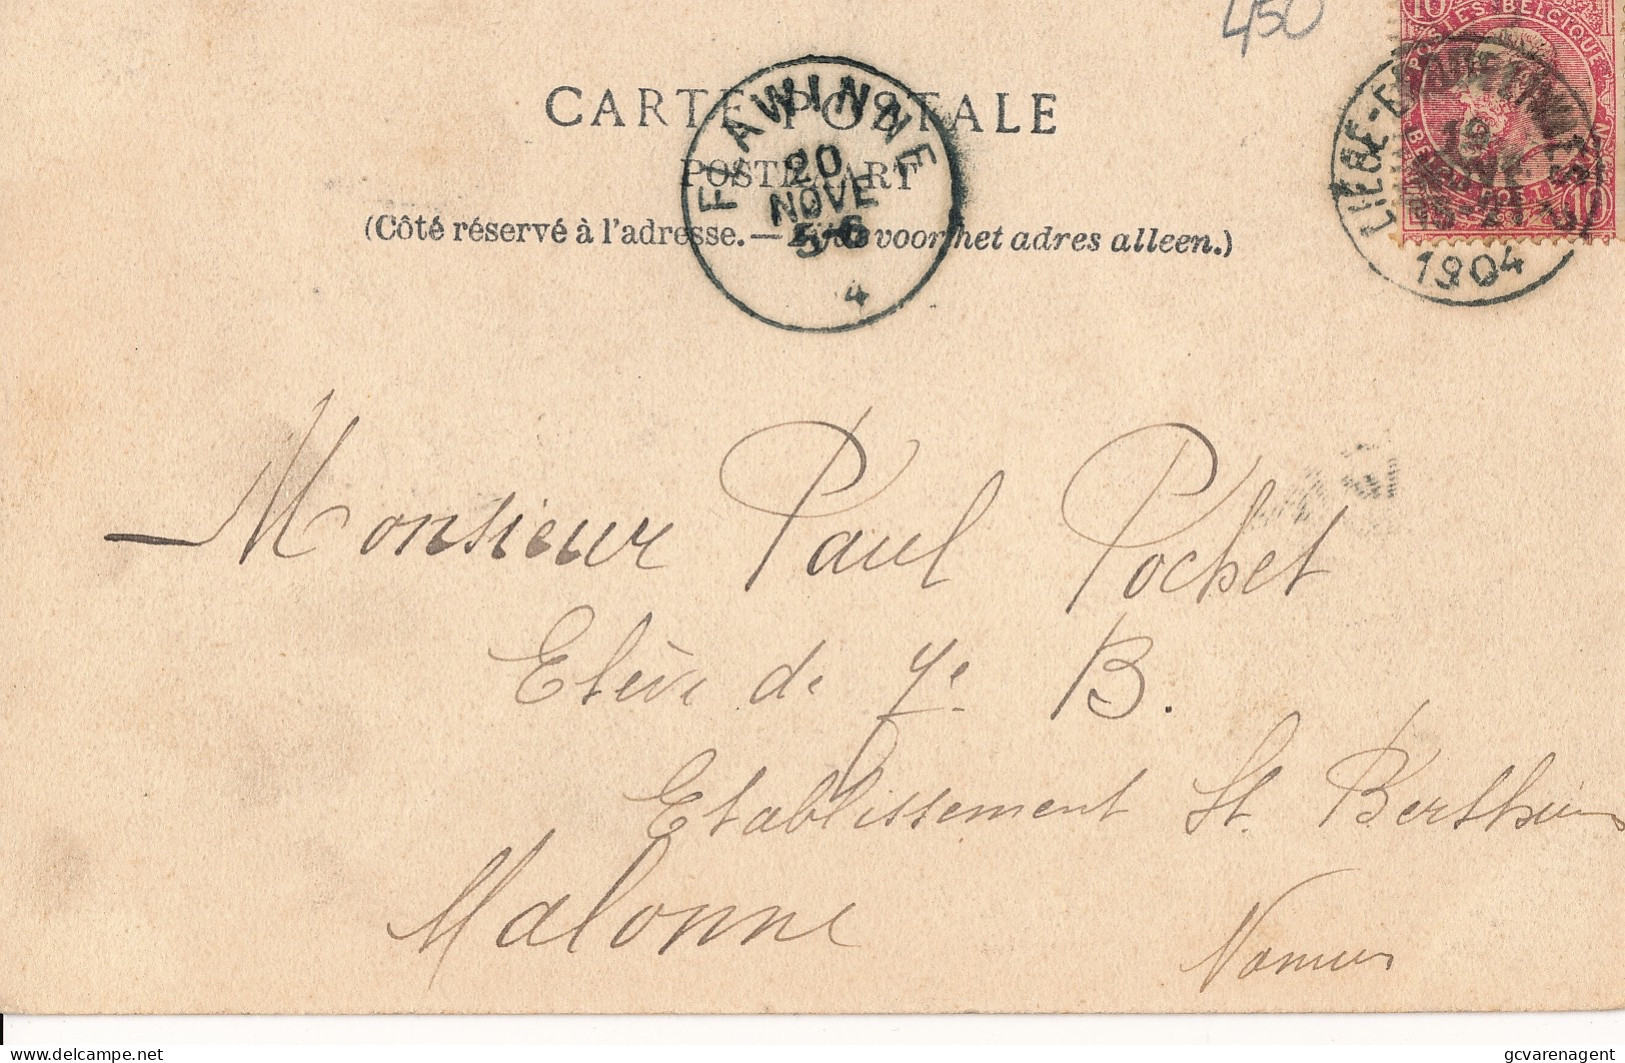 450
10
POSTES BELGIQUE
CARTE POSTALE
POSTKAART
(Côté réservé à l'adresse. — Zijde voor het adres alleen.)
FLAWINNE
20
NOVE
5-6
4
19
10
1904
Monsieur Paul Pochet
Elève de 7e B.
Etablissement St. Berthuin
Malonne
Namur
gcvarenagent